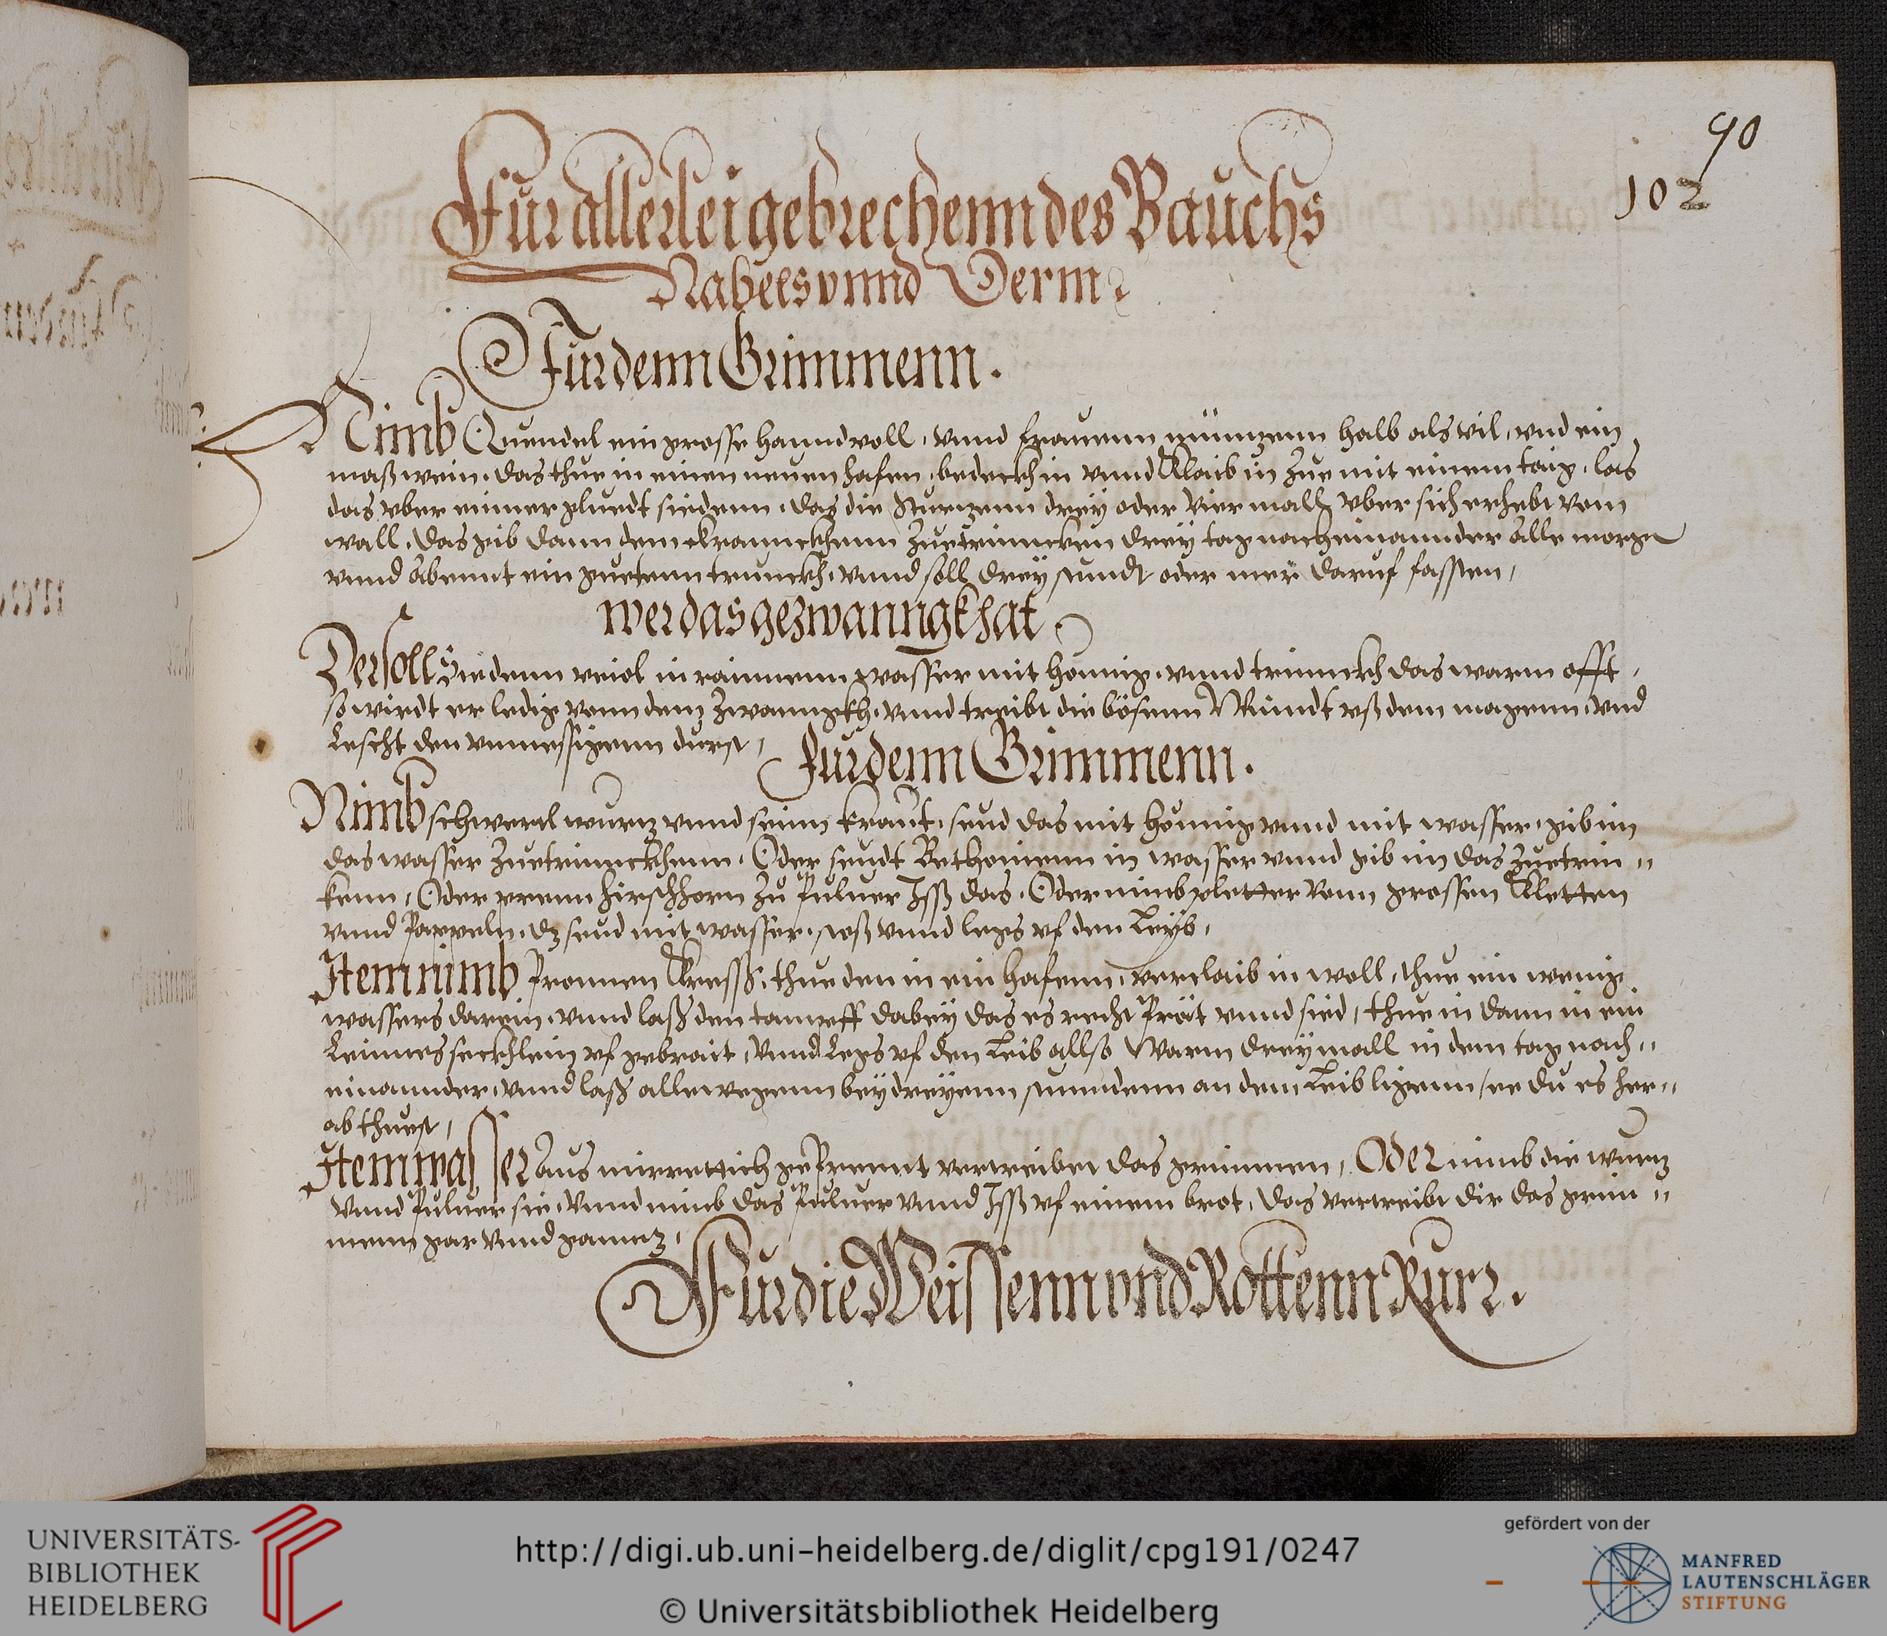 90
102
Fur allerlei gebrechenn des Bauchs
Nabels vnnd Derm
Fur denn Grimmenn.
Nimb Quendel ein grosse hanndvoll, vnnd frauenn münnzenn halb als vil, vnd ein
maß wein, das thue in einen neuen hafen, bedeckh in vnnd klaib in zue mit einem taig, las
das vber einner gluedt siedenn, das die Sturzenn drey oder vier mall vber sich erhebt vom
wall, das gib dann dem kranneckhenn zuetrinncken drey tag nach einannder alle morge
vnnd abennt ein guetenn trunckh, vnnd soll drey stundt oder mer daruf fassten,
wer das gezwanngkhat.
Der soll Siedenn veiol in rainnenn wasser mit honnig, vnnd trinnckh das warm offt,
so wirdt er ledig vonn dem zwanngkh, vnnd treibt die bösenn Windt vß dem magenn, vnd
Lescht den vnmessigenn durst,
Fur denn Grimmenn.
Nimb schwertl wurz vnnd sein kraut, seud das mit honnig vnnd mit wasser, gib im
das wasser zuetrinnckhenn, Oder seudt Bethonienn in wasser vnnd gib im das zuetrin"
kenn, Oder prenn hirschhorn zu Puluer Iss das, Oder nimb pletter vonn grossen kletten
vnnd Pappeln, dz seud mit wasser, stoß vnnd legs vf den Leyb,
Item nimb Pronnen kress, thue den in ein hafenn, verclaib in woll, thue ein wenig
wassers darein, vnnd laß den tampff dabey das es recht Prät vnnd sied, thue in dann in ein
Leinnes seckhlein vf gebrait, vnnd Legs vf den Leib allso Warm dreymall in dem tag nach"
einannder, vnnd laß allewegenn bey dreyenn stunndenn an dem Leib ligenn, ee du es her"
ab thuest,
Item wasser aus mirrettich geprennt vertreibet das grimmen, Oder nimb die wurz
vnnd Puluer sie, vnnd nimb das Puluer vnnd Iss vf einem brot, das vertreibt dir das grim"
menn gar vnnd gannz,
Fur die Weissenn vnd Rottenn Rur.
UNIVERSITÄTS-
BIBLIOTHEK
HEIDELBERG
http://digi.ub.uni-heidelberg.de/diglit/cpg191/0247
© Universitätsbibliothek Heidelberg
gefördert von der
MANFRED
LAUTENSCHLÄGER
STIFTUNG